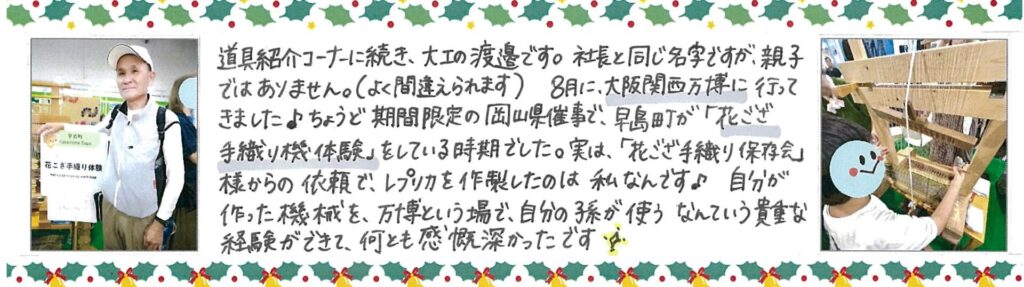 道具紹介コーナーに続き、大工の渡邉です。社長と同じ名字ですが、親子
ではありません。(よく間違えられます) 8月に、大阪関西万博に行って
きました♪ちょうど期間限定の岡山県催事で、早島町が「花ござ
手織り機体験」をしている時期でした。実は、「花ござ手織り保存会」
様からの依頼で、レプリカを作製したのは私なんです♪ 自分が
作った機械を、万博という場で、自分の孫が使うなんていう貴重な
経験ができて、何とも感慨深かったです
早島町
Hayashima Town
花ござ手織り体験